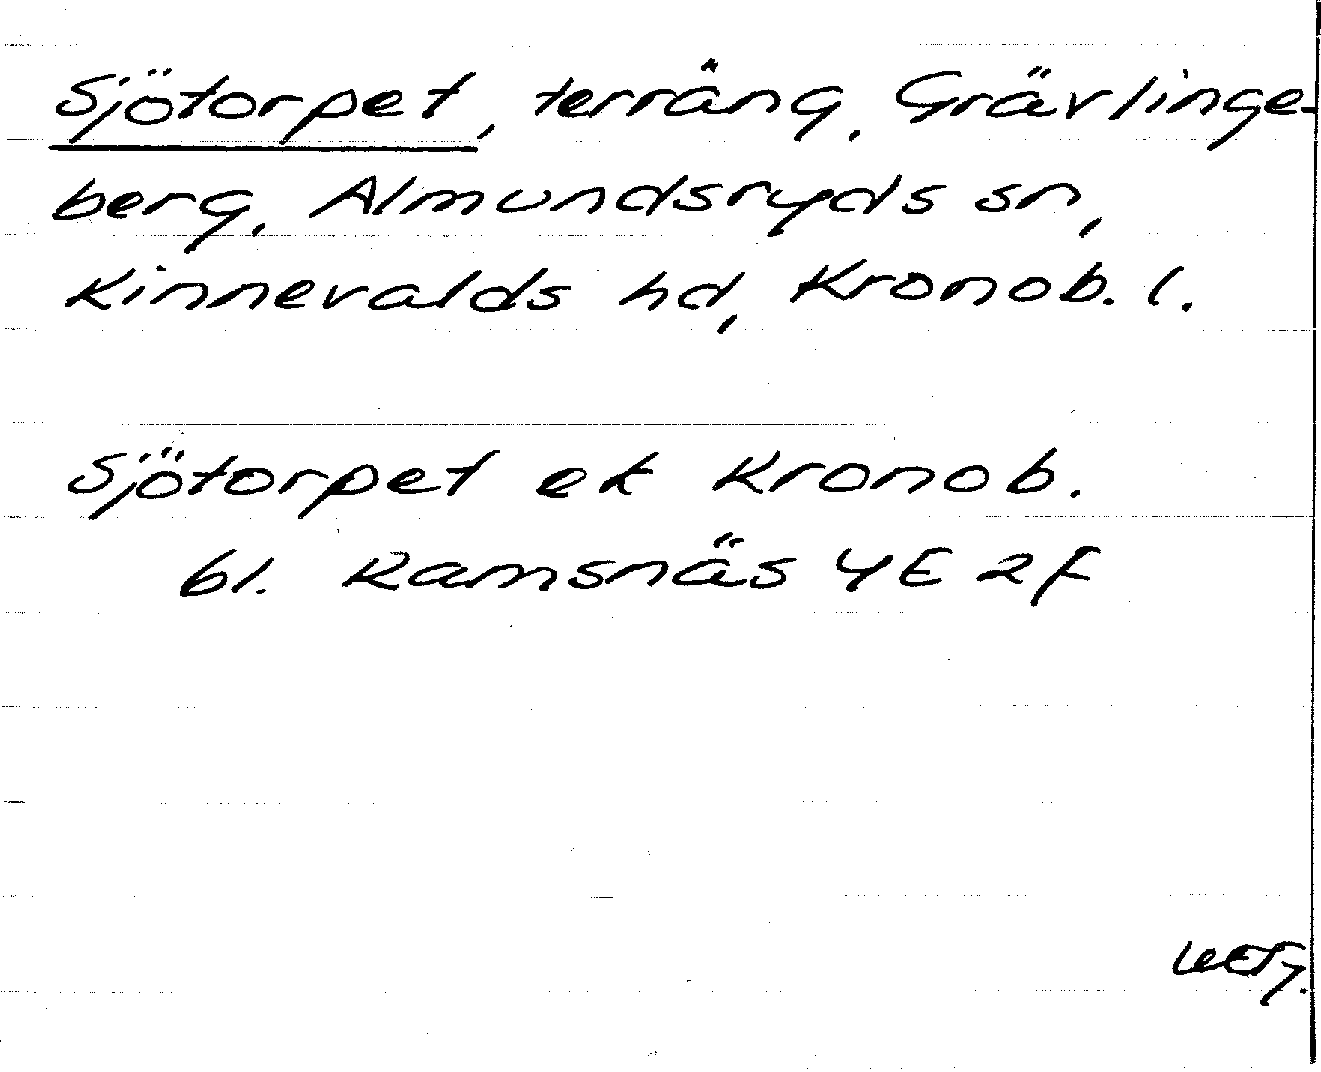 Sjötorpet, terräng, Grävlinge-
berg, Almundsryds sn,
Kinnevalds hd, Kronob. l.
Sjötorpet ek Kronob.
bl. Ramsnäs 4E 2f